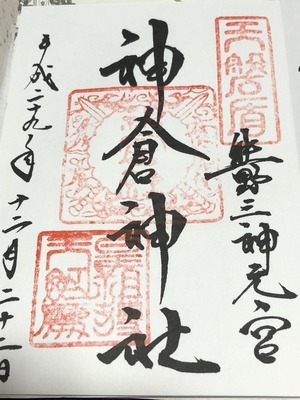 天磐盾
熊野三神元宮
神倉神社
平成二九年十二月二十二日